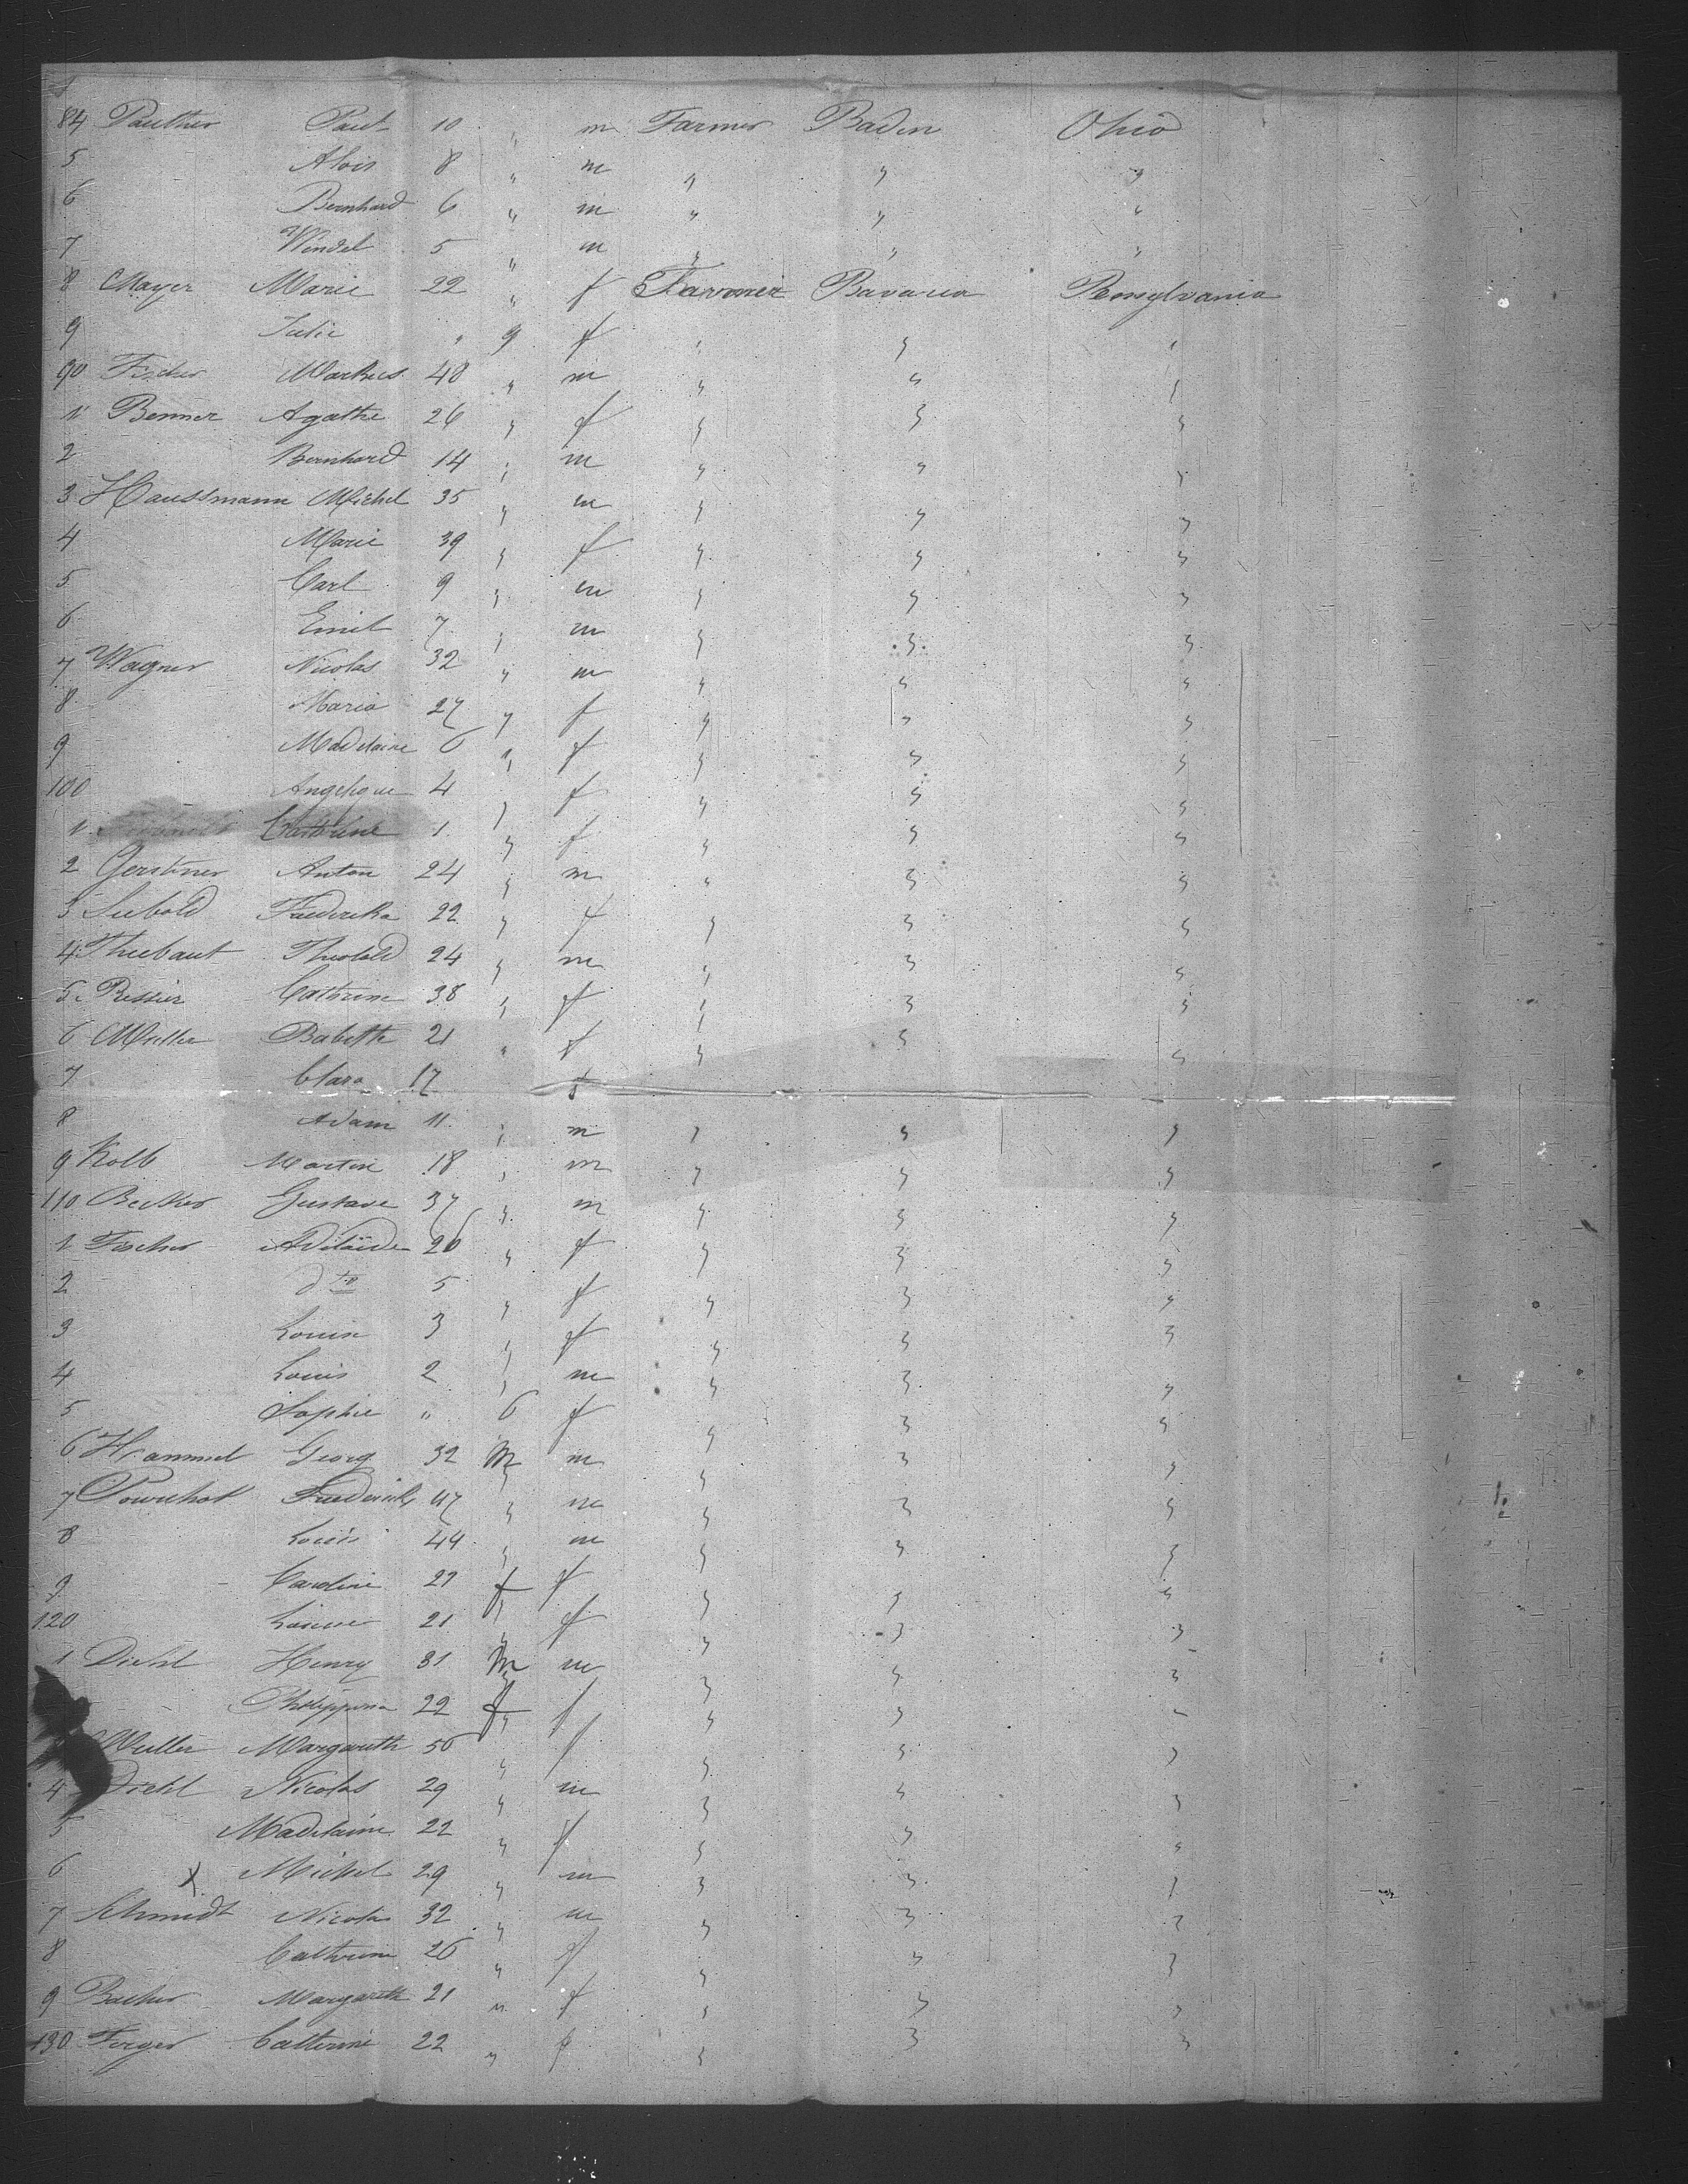 84 Panther Paul 10 " m Farmer Baden Ohio
5 Alois 8 " m " " "
6 Bernhard 6 " m " " "
7 Wendel 5 " m " " "
8 Mayer Marie 22 " f Farmer Bavaria Pensylvania
9 Julie " 9 f " " "
90 Fischer Markus 48 " m " " "
1 Benner Agathe 26 " f " " "
2 Bernhard 14 " m " " "
3 Haussmann Michel 35 " m " " "
4 Marie 39 " f " " "
5 Carl 9 " m " " "
6 Emil 7 " m " " "
7 Wagner Nicolas 32 " m " " "
8 Maria 27 " f " " "
9 Madelaine 6 " f " " "
100 Angelique 4 " f " " "
1 Catherine 1 " f " " "
2 Gerstner Anton 24 " m " " "
3 Seebold Friederika 22 " f " " "
4 Thiebaut Theobald 24 " m " " "
5 Ressier Catherine 38 " f " " "
6 Muller Babette 21 " f " " "
7 Clara 17 f
8 Adam 11 " m " " "
9 Kolb Martin 18 " m " " "
110 Becker Gustave 37 " m " " "
1 Fischer Adelaide 26 " f " " "
2 dto 5 " f " " "
3 Louise 3 " f " " "
4 Louis 2 " m " " "
5 Sophie " 6 f " " "
6 Hammel Georg 32 m m " " "
7 Pourchot Frederick 47 " m " " "
8 Louis 44 " m " " "
9 Caroline 27 f f " " "
120 Louise 21 " f " " "
1 Diehl Henry 31 m m " " "
Philippina 22 f f " " "
Muller Margareth 50 " f " " "
4 Diehl Nicolas 29 " m " " "
5 Madelaine 22 " f " " "
6 x Michel 29 " m " " "
7 Schmidt Nicolas 32 " m " " "
8 Catherine 26 " f " " "
9 Bacher Margareth 21 " f " " "
130 Ferger Catherine 22 " f " " "